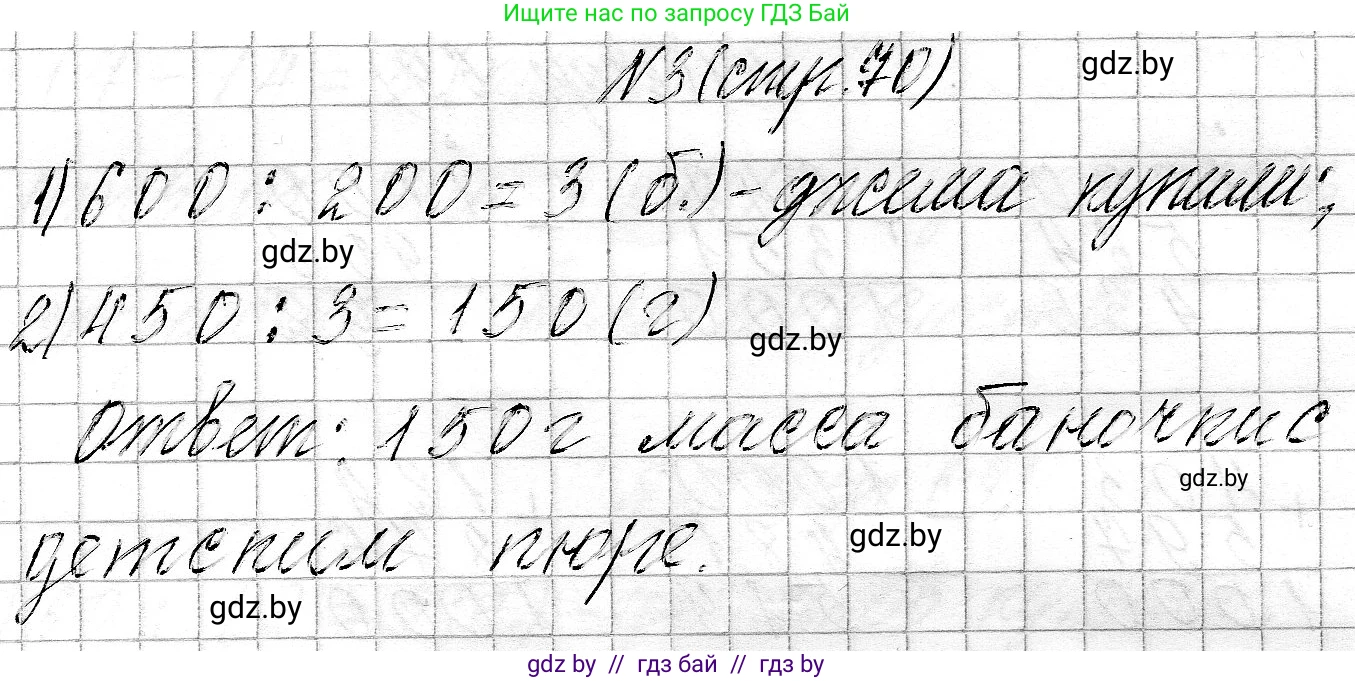 Ищите нас по запросу ГДЗ Бай
N3 (стр. 70)
gdz.by
1) 600 : 200 = 3 (б.) - джема купили;
gdz.by
2) 450 : 3 = 150 (г)
gdz.by
Ответ: 150 г масса баночки с
gdz.by
детским пюре.
gdz.by
gdz.by
gdz by // гдз бай // гдз by